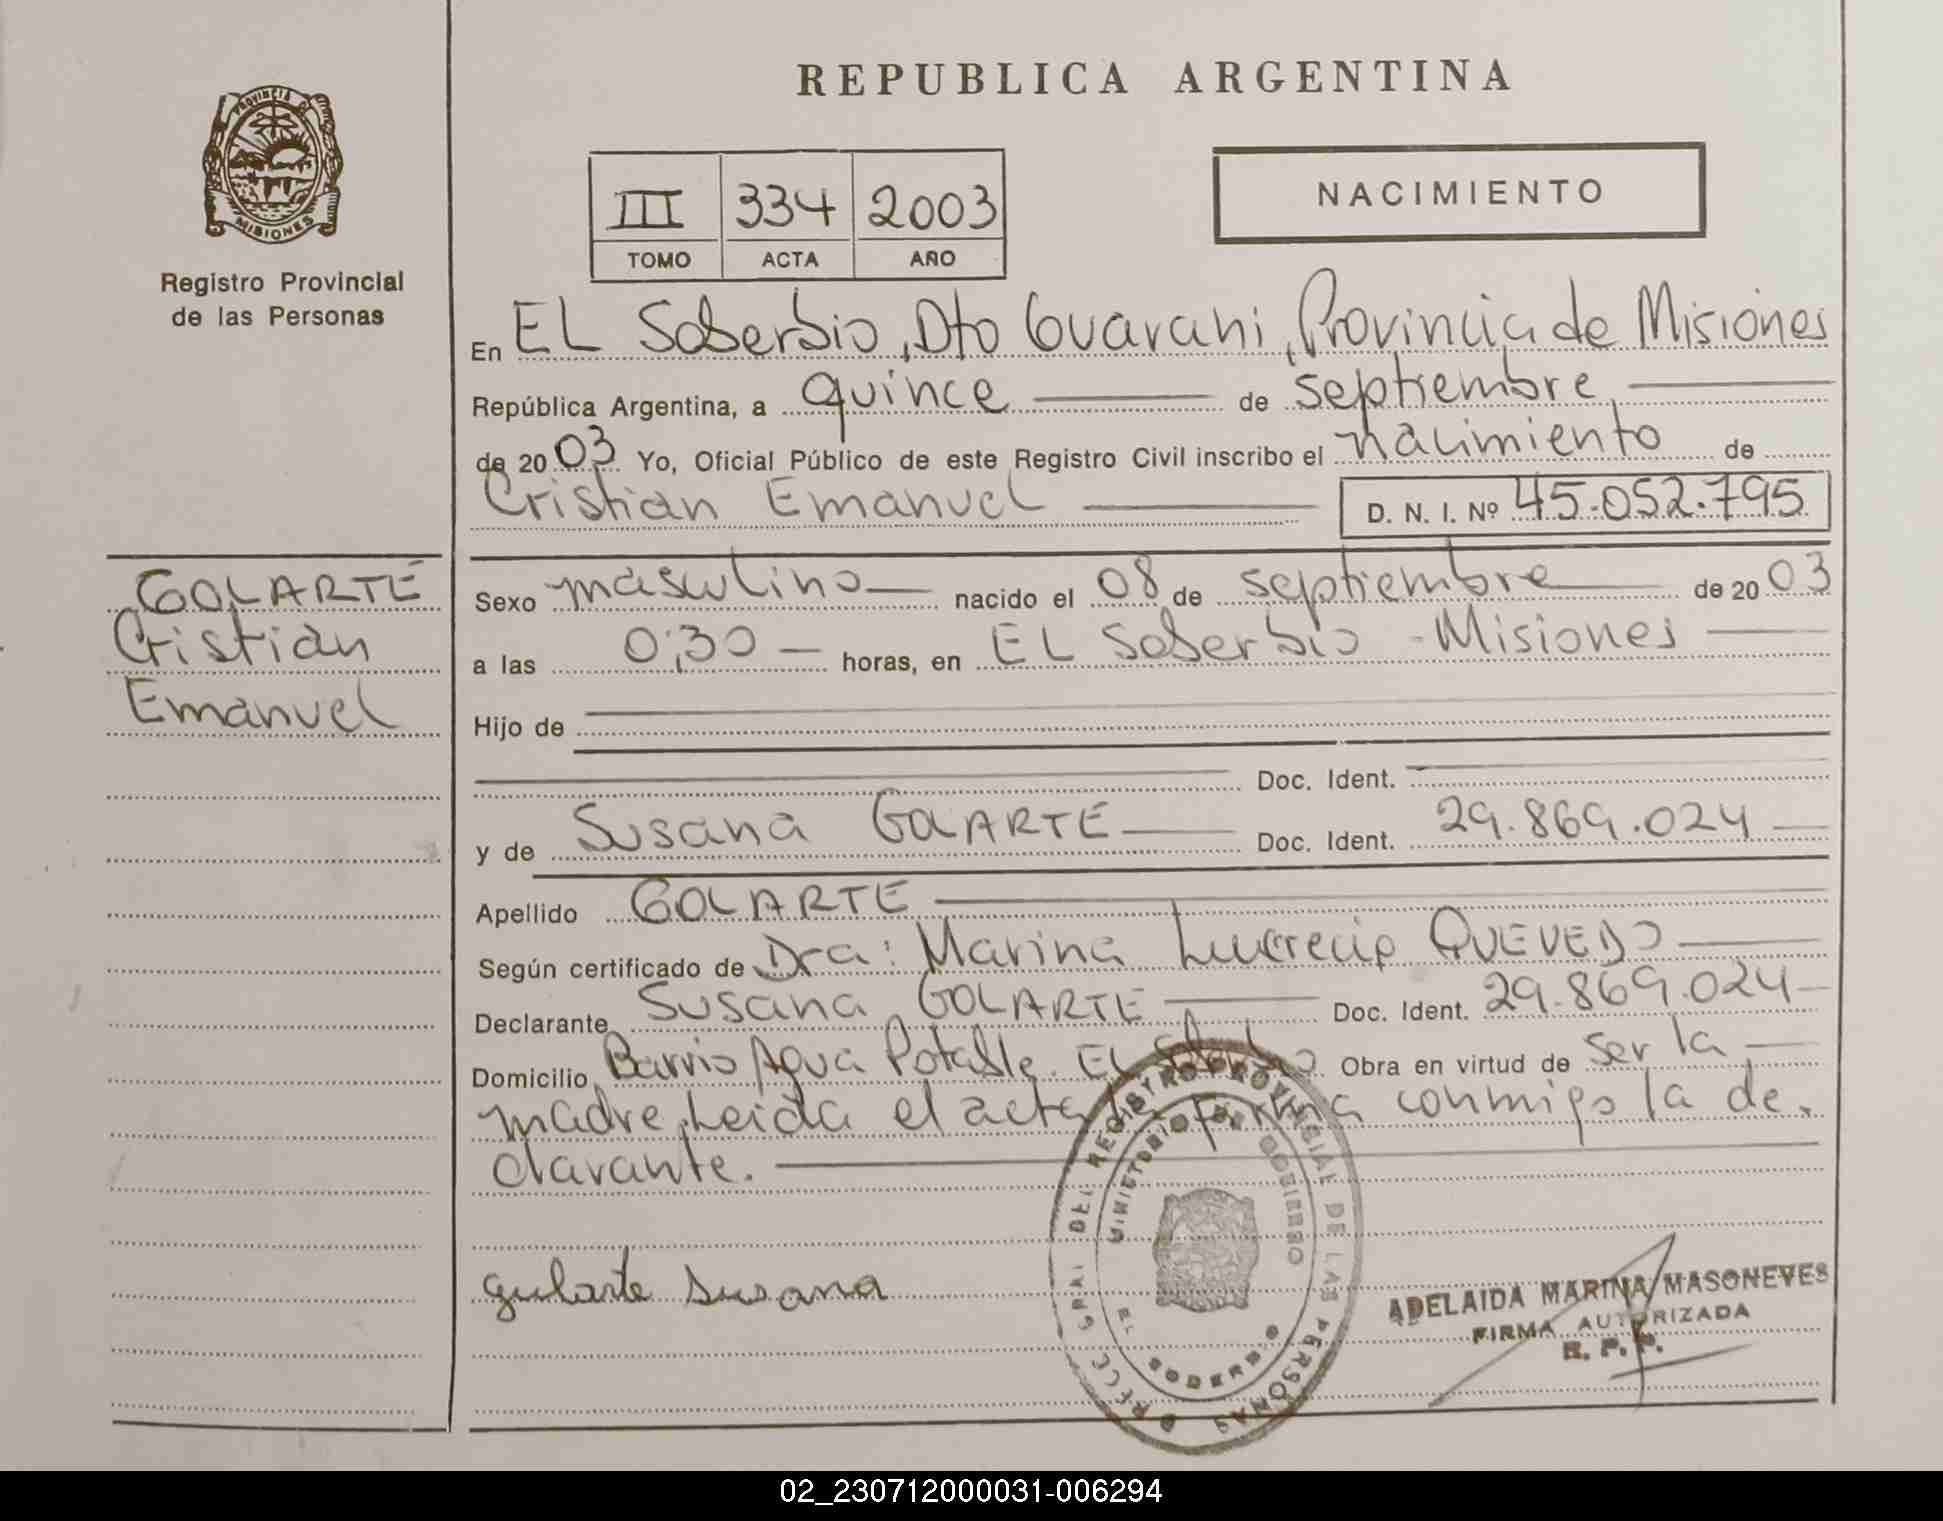 REPUBLICA ARGENTINA
PROVINCIA DE
MISIONES
Registro Provincial
de las Personas
III 334 2003
TOMO ACTA AÑO
NACIMIENTO
En EL Soberbio, Dto Guarani, Provincia de Misiones
República Argentina, a quince de septiembre
de 2003 Yo, Oficial Público de este Registro Civil inscribo el nacimiento de
Cristian Emanuel
D. N. I. Nº 45.052.795
GOLARTE
Cristian
Emanuel
Sexo masculino nacido el 08 de septiembre de 2003
a las 0;30 horas, en EL Soberbio - Misiones
Hijo de
Doc. Ident.
y de Susana GOLARTE Doc. Ident. 29.869.024
Apellido GOLARTE
Según certificado de Dra: Marina Lucrecia QUEVEDO
Declarante Susana GOLARTE Doc. Ident. 29.869.024
Domicilio Barrio Agua Potable. EL Soberbio Obra en virtud de ser la
madre, Leida el acta la firma conmigo la de.
clarante.
gularte susana
REGISTRO PROVINCIAL DE LAS PERSONAS
MINISTERIO DE GOBIERNO
EL SOBERBIO
ADELAIDA MARINA MASONEVES
FIRMA AUTORIZADA
R. P. P.
02_230712000031-006294